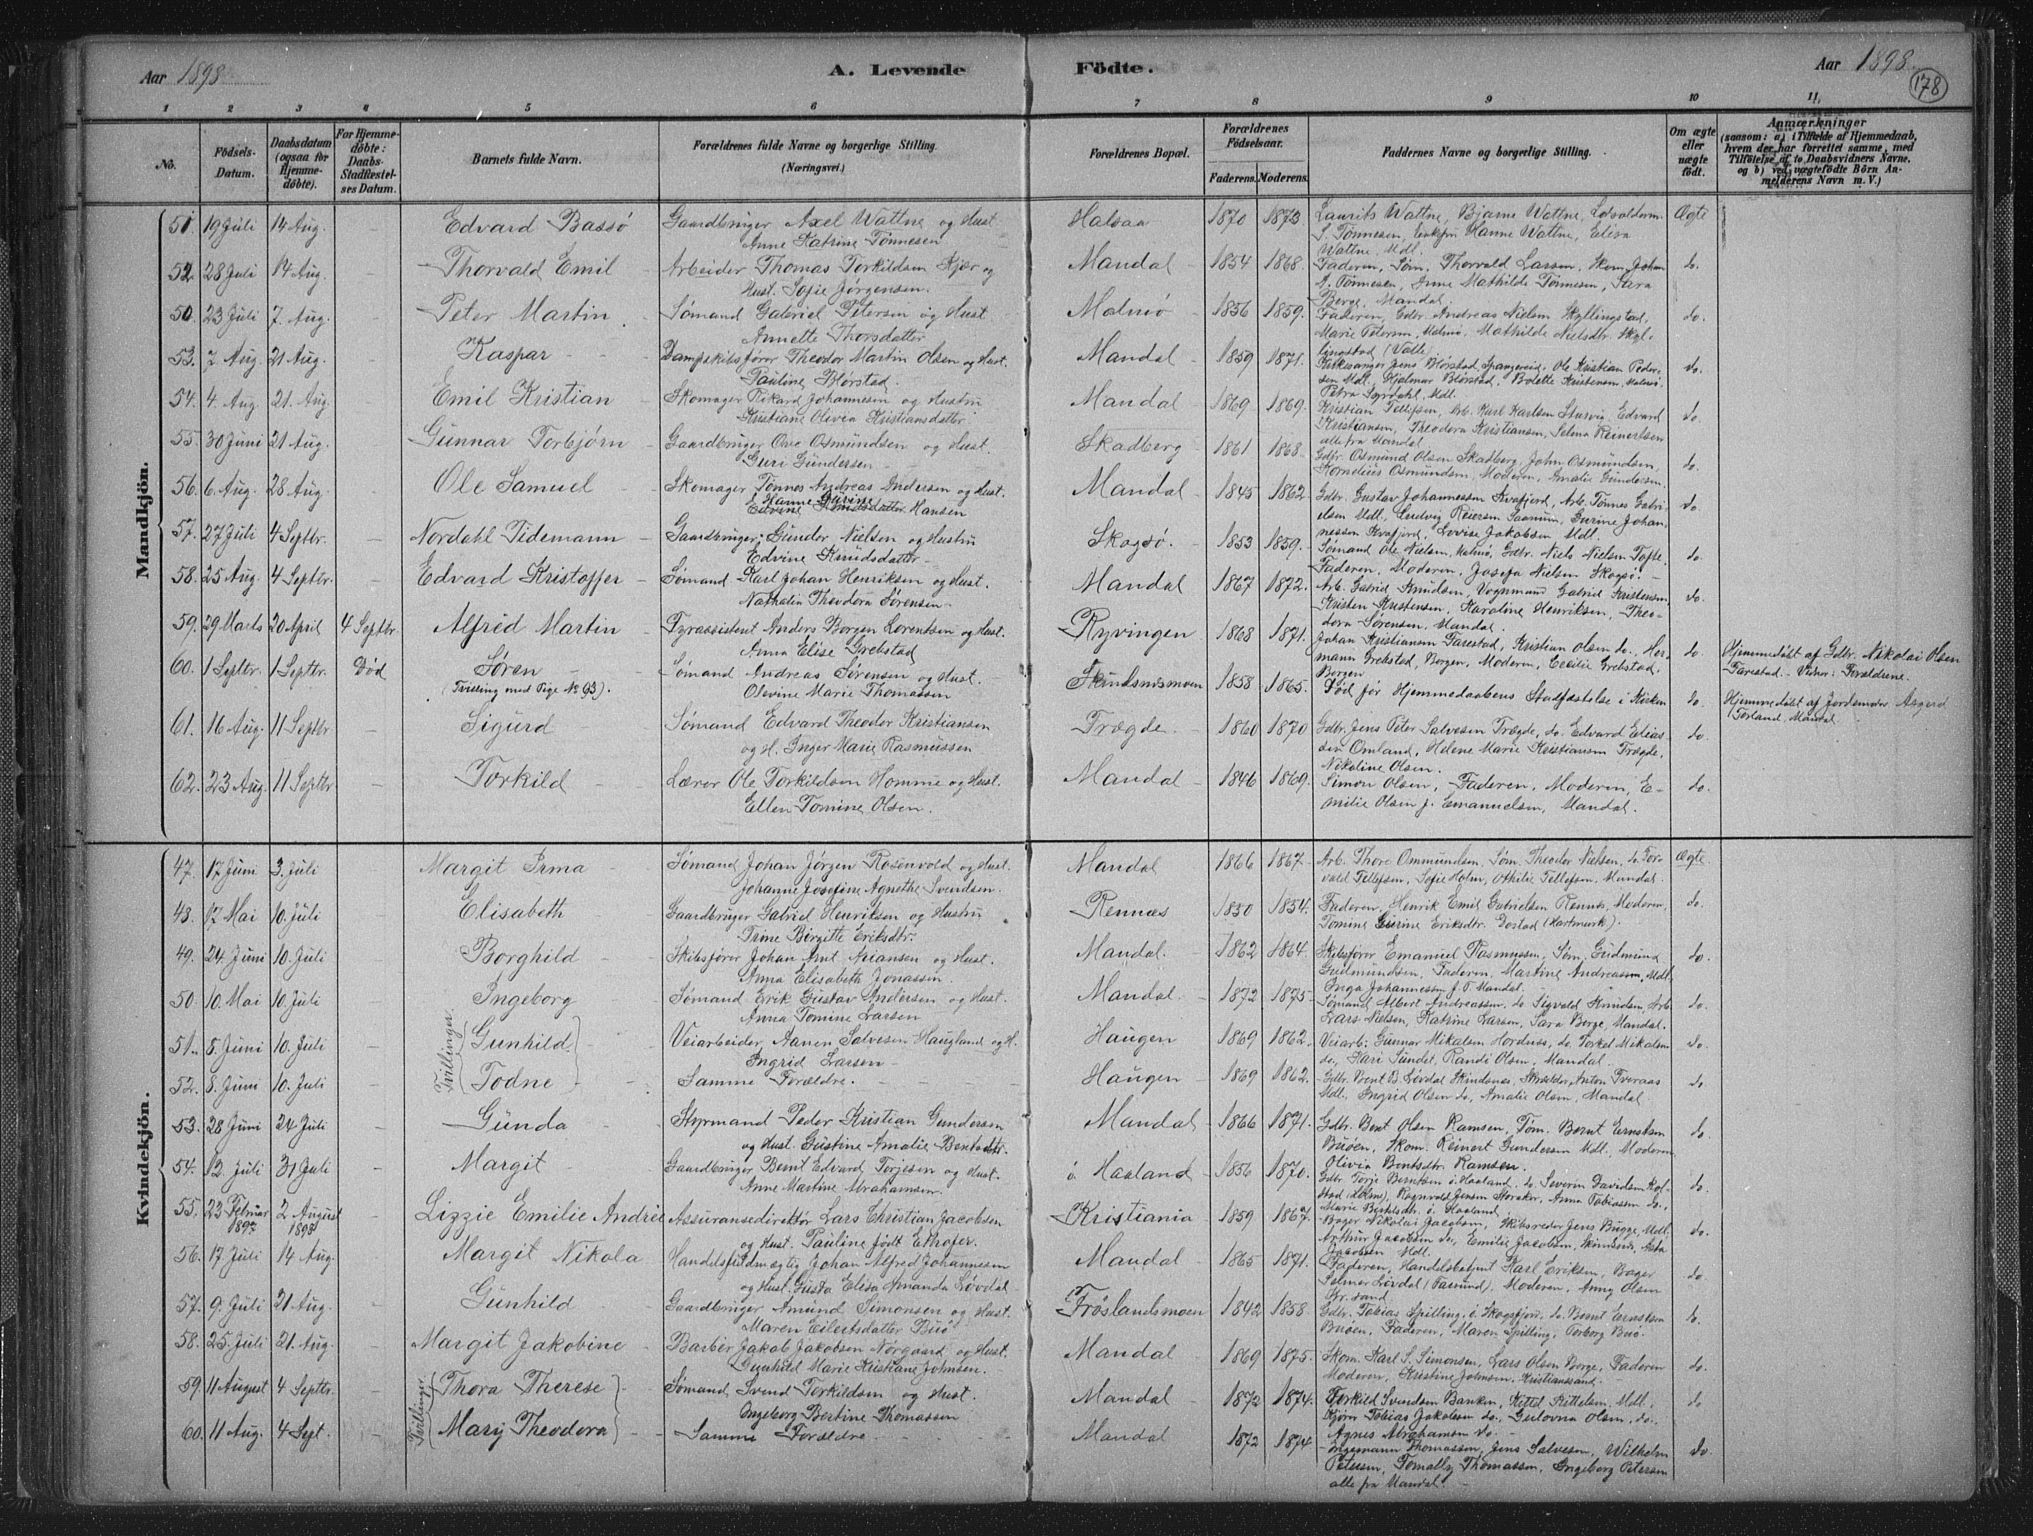 Aar 1898
A. Levende
Födte.
Aar 1898.
178
1 2 3 4 5 6 7 8 9 10 11.
No.
Födsels-Datum.
Daabsdatum (ogsaa for Hjemmedöbte).
For Hjemmedøbte: Daabs-Stadfæstelses Datum.
Barnets fulde Navn.
Forældrenes fulde Navne og borgerlige Stilling. (Næringsvei.)
Forældrenes Bopæl.
Forældrenes Födselsaar.
Faderens. Moderens.
Faddernes Navne og borgerlige Stilling.
Om ægte eller uægte födt.
Anmærkninger
(saasom: a) i Tilfælde af Hjemmedaab, hvem der har forrettet samme, med Tilföielse af to Daabsvidners Navne, og b) ved uægtefödte Börn Anmelderens Navn m. V.)
Mandkjön.
51. 19 Juli 14 Aug. - Edvard Bassö Gaardbruger Axel Wattne og Hust. Anne Katrine Tønnesen Halsaa 1870 1873 Laurits Wattne, Bjarne Wattne, S. Tønnesen, Hanne Wattne, Elisa Wattne, Mdl. Ægte
52. 28 Juli 14 Aug. - Thorvald Emil - Arbeider Thomas Torkildsen Kjær og Hust. Sofie Jørgensen. Mandal 1854 1868. Faderen, Søm. Thorvald Larsen, Skom. Johan A. Tønnesen, Anne Mathilde Tønnesen, Sara Berge, Mandal. do.
50. 23 Juli 7. Aug. - Peter Martin Sømand Gabriel Petersen og Hust. Annette Thorsdatter Malmø 1856 1859. Faderen, Gdbr. Andreas Nielsen Skyllingstad, Marie Petersen, Malmø, Mathilde Nielsdtr. Skyllingstad (Valle) do.
53. 2 Aug. 21 Aug. - Kaspar - Dampskibsfører Theodor Martin Olsen og Hust. Pauline Blørstad. Mandal 1859 1871. Kirkesanger Jens Blørstad Spangereid, Ole Kristian Pedersen Mdl. Hjalmar Blørstad, Bolette Kristensen, Malmø, Petra Syrdahl, Mdl. do.
54. 4. Aug. 21. Aug. - Emil Kristian - Skomager Rikard Johannesen og Hustru Kristiane Olivia Kristiansdatter. Mandal 1869 1869. Kristian Tellefsen, Arb. Karl Karlsen Sturvig, Edvard Kristiansen, Theodora Kristiansen, Selma Reinertsen alle fra Mandal. do.
55. 30 Juni 21 Aug. - Gunnar Torbjørn - Gaardbruger Ove Osmundsen og Hust. Guri Gundersen - Skadberg 1861 1868. Gdbr. Osmund Olsen Skadberg, John Osmundsen, Kornelius Osmundsen, Moderen, Amalie Gundersen. do.
56. 6. Aug. 28 Aug. - Ole Samuel - Skomager Tønnes Andreas Andersen og Hust. Hanne Gurine Hansen Mandal 1845 1862 Gdbr. Gustav Johannessen Kvafjord, Arb. Tønnes Gabrielsen Mdl. Ludvig Reiersen Saanum, Gurine Johannessen Kvafjord, Lovise Jakobsen Mdl. do.
57. 27 Juli 4 Septbr. - Nordahl Tidemann - Gaardbruger Gunder Nielsen og Hustru Edvine Knudsdatter Skogsø. 1853 1859. Sømand Ole Nielsen, Malmø, Gdbr. Niels Nielsen Tofte, Faderen, Moderen, Josefa Nielsen Skogsø. - do.
58. 25 Aug. 4 Septbr. - Edvard Kristoffer - Sømand Karl Johan Henriksen og Hust. Nathalia Theodora Sørensen. Mandal 1867 1872. Arb. Gabriel Knudsen, Vognmand Gabriel Kristensen, Kristen Kristensen, Karoline Henriksen, Theodora Sørensen, Mandal. do.
59. 29 Marts 20 April 4 Septbr. Alfred Martin - Fyrassistent Anders Borgen Lorentsen og Hust. Anna Elise Grebstad Ryvingen 1868 1871. Johan Kristiansen Farestad, Kristian Olsen do. Hermann Grebstad, Borgen, Moderen, Cecilie Grebstad. Borgen do. Hjemmedøbt af Gdbr. Nikolai Olsen Farestad. - Vidner: Forældrene.
60. 1 Septbr. 1 Septbr. Død Søren - (Tvilling med Pige No 63). Sømand Andreas Sørensen og Hust. Olevine Marie Thomassen Skindsnismoen 1858 1865. Død før Hjemmedaabens Stadfæstelse i Kirken do. Hjemmedøbt af Jordemoder Asgerd Forland, Mandal
61. 16 Aug. 11 Septbr. - Sigurd - Sømand Edvard Theodor Kristiansen og H. Inger Marie Rasmussen Trægde. 1860 1870 Gdbr. Jens Peter Salvesen Trægde, do. Edvard Eliassen Omland, Helene Marie Kristiansen Trægde, Nikoline Olsen. do.
62. 23 Aug. 11 Septbr. - Torkild - Lærer Ole Torkildsen Homme og Hust. Ellen Tomine Olsen. Mandal 1846 1869. Simon Olsen, Faderen, Moderen, Emilie Olsen f. Emanuelsen, Mandal. do.
Kvindekjön.
47. 17 Juni 3. Juli - Margit Irma - Sømand Johan Jørgen Rosenvold og Hust. Johanne Josefine Agnethe Svendsen. Mandal 1866 1867. Arb. Thore Ommundsen, Søm. Theodor Nielsen, do Torvald Tellefsen, Sofie Holm, Othilie Tellefsen, Mandal. Ægte
48. 17 Mai 10. Juli - Elisabeth - Gaardbruger Gabriel Henriksen og Hustru Trine Birgitte Eriksdtr. Rennæs 1850 1854. Faderen, Henrik Emil Gabrielsen Rennes, Moderen, Tomine Gurine Eriksdtr. (Hartmark). do.
49. 24 Juni 10. Juli - Borghild - Skibsfører Johan Amt Ariansen og Hust. Anna Elisabeth Jonassen. Mandal. 1862 1864. Skibsfører Emanuel Rasmussen, Søm. Gudmund Gudmundsen, Faderen, Martine Andreassen, Mdl., Inga Johannessen f. P. Mandal. do.
50. 10. Mai 10. Juli - Ingeborg - Sømand Erik Gustav Andersen og Hust. Anna Tomine Larsen Mandal. 1872 1875. Sømand Albert Andreassen, do Sigvald Knudsen, Arb. Lars Nielsen, Katrine Larsen, Sara Berge, Mandal. do.
Tvillinger.
51. 8. Juni 10. Juli - Gunhild. Veiarbeider Aanen Salvesen Haugland og H. Ingrid Larsen - Haugen 1869 1862. Veiarb. Gunnar Mikalsen Hordnes, do Torkel Mikalsen do, Kari Sundet, Randi Olsen, Mandal. do.
52. 8. Juni 10. Juli - Todne - Samme Forældre. - Haugen - 1869 1862. Gdbr. Bent B. Løvdal Skindsnes, Skrædder Anton Tveraas Mdl., Ingrid Olsen do, Amalie Olsen, Mandal. do.
53. 28 Juni 24 Juli - Gunda - Styrmand Peder Kristian Gundersen og Hust. Gustine Amalie Bentsdtr. Mandal - 1866 1871. Gdbr. Bent Olsen Ramsen, Tøm. Bernt Ernstsen Buøen, Skom. Reinert Gundersen Mdl. Moderen, Olivia Bentsdtr. Ramsen. do.
54. 12 Juli 31 Juli - Margit - Gaardbruger Bernt Edvard Terjesen og Hust. Anne Martine Abrahamsen. ö Haaland 1856 1870. Gdbr. Terje Berntsen ö Haaland, do. Severin Davidsen (Holme), Ragnvald Jensen Storaker, Anna Tobiassen do., Marie ö Haaland. do.
55. 23 Februar 1897 2 August 1898 - Lizzie Emilie Andrée Assuransedirektør Lars Christian Jacobsen og Hust. Pauline født Ekhofer. Kristiania 1859 1867. Bager Nikolai Jacobsen, Skibsreder Jens Bugge, Mdl. Arthur Jacobsen do, Emilie Jacobsen, Asta Jacobsen Mdl. do.
56. 17. Juli 14 Aug. - Margit Nikola Handelsfuldmægtig Johan Alfred Johannesen og Hust. Gusta Elisa Amanda Løvdal Mandal 1865 1871. Faderen, Handelsbetjent Karl Eriksen, Bager Selmer Løvdal (Farsund), Moderen, Anny Olsen Kr.sand. do
57. 9. Juli 21 Aug. - Gunhild Gaardbruger Amund Simonsen og Hust. Maren Eilertsdatter Buø Frøslandsmoen 1842 1858. Gdbr. Tobias Spilling, ö. Skogsfjord, do. Bernt Ernstsen Buøen, Faderen, Maren Spilling, Torborg Buø. do.
58. 25. Juli 21. Aug. - Margit Jakobine - Barbér Jakob Jakobsen Nörgaard og Hust. Gunhild Marie Kristiane Johnsen. Mandal 1869 1875. Skom. Karl S. Simonsen, Lars Olsen Berge, Faderen, Moderen, Kristine Johnsen, Kristianssand. do.
Tvillinger
59. 11 August 4 Septbr. Thora Therese - Sømand Svend Torkildsen og Hust. Ingeborg Bertine Thomassen Mandal - 1872 1874. Torkild Svendsen Banken, Kittel Kittelsen, Mdl., Bjørn Tobias Jakobsen do, Gulovna Olsen, do. Agnes Abrahamsen do. - do
60. 11 Aug. 4 Sept. Mary Theodora - Samme Forældre - Mandal 1872 1874 Ingemann Thomassen, Jens Salvesen, Wilhelm Petersen, Tomally Thomassen, Ingeborg Petersen alle fra Mandal. - do.